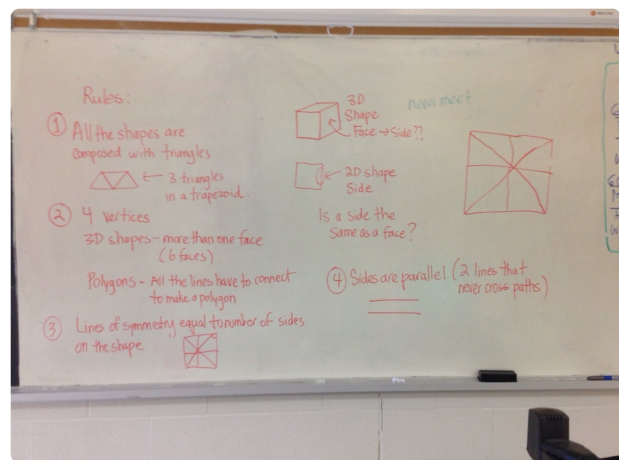 Rules:
① All the shapes are
composed with triangles
← 3 triangles
in a trapezoid.
② 4 vertices
3D shapes - more than one face
(6 faces)
Polygons - All the lines have to connect
to make a polygon
③ Lines of symmetry equal to number of sides
on the shape
3D
Shape
Face → Side??
never meet
← 2D shape
Side
Is a side the
same as a face?
④ Sides are parallel (2 lines that
never cross paths)